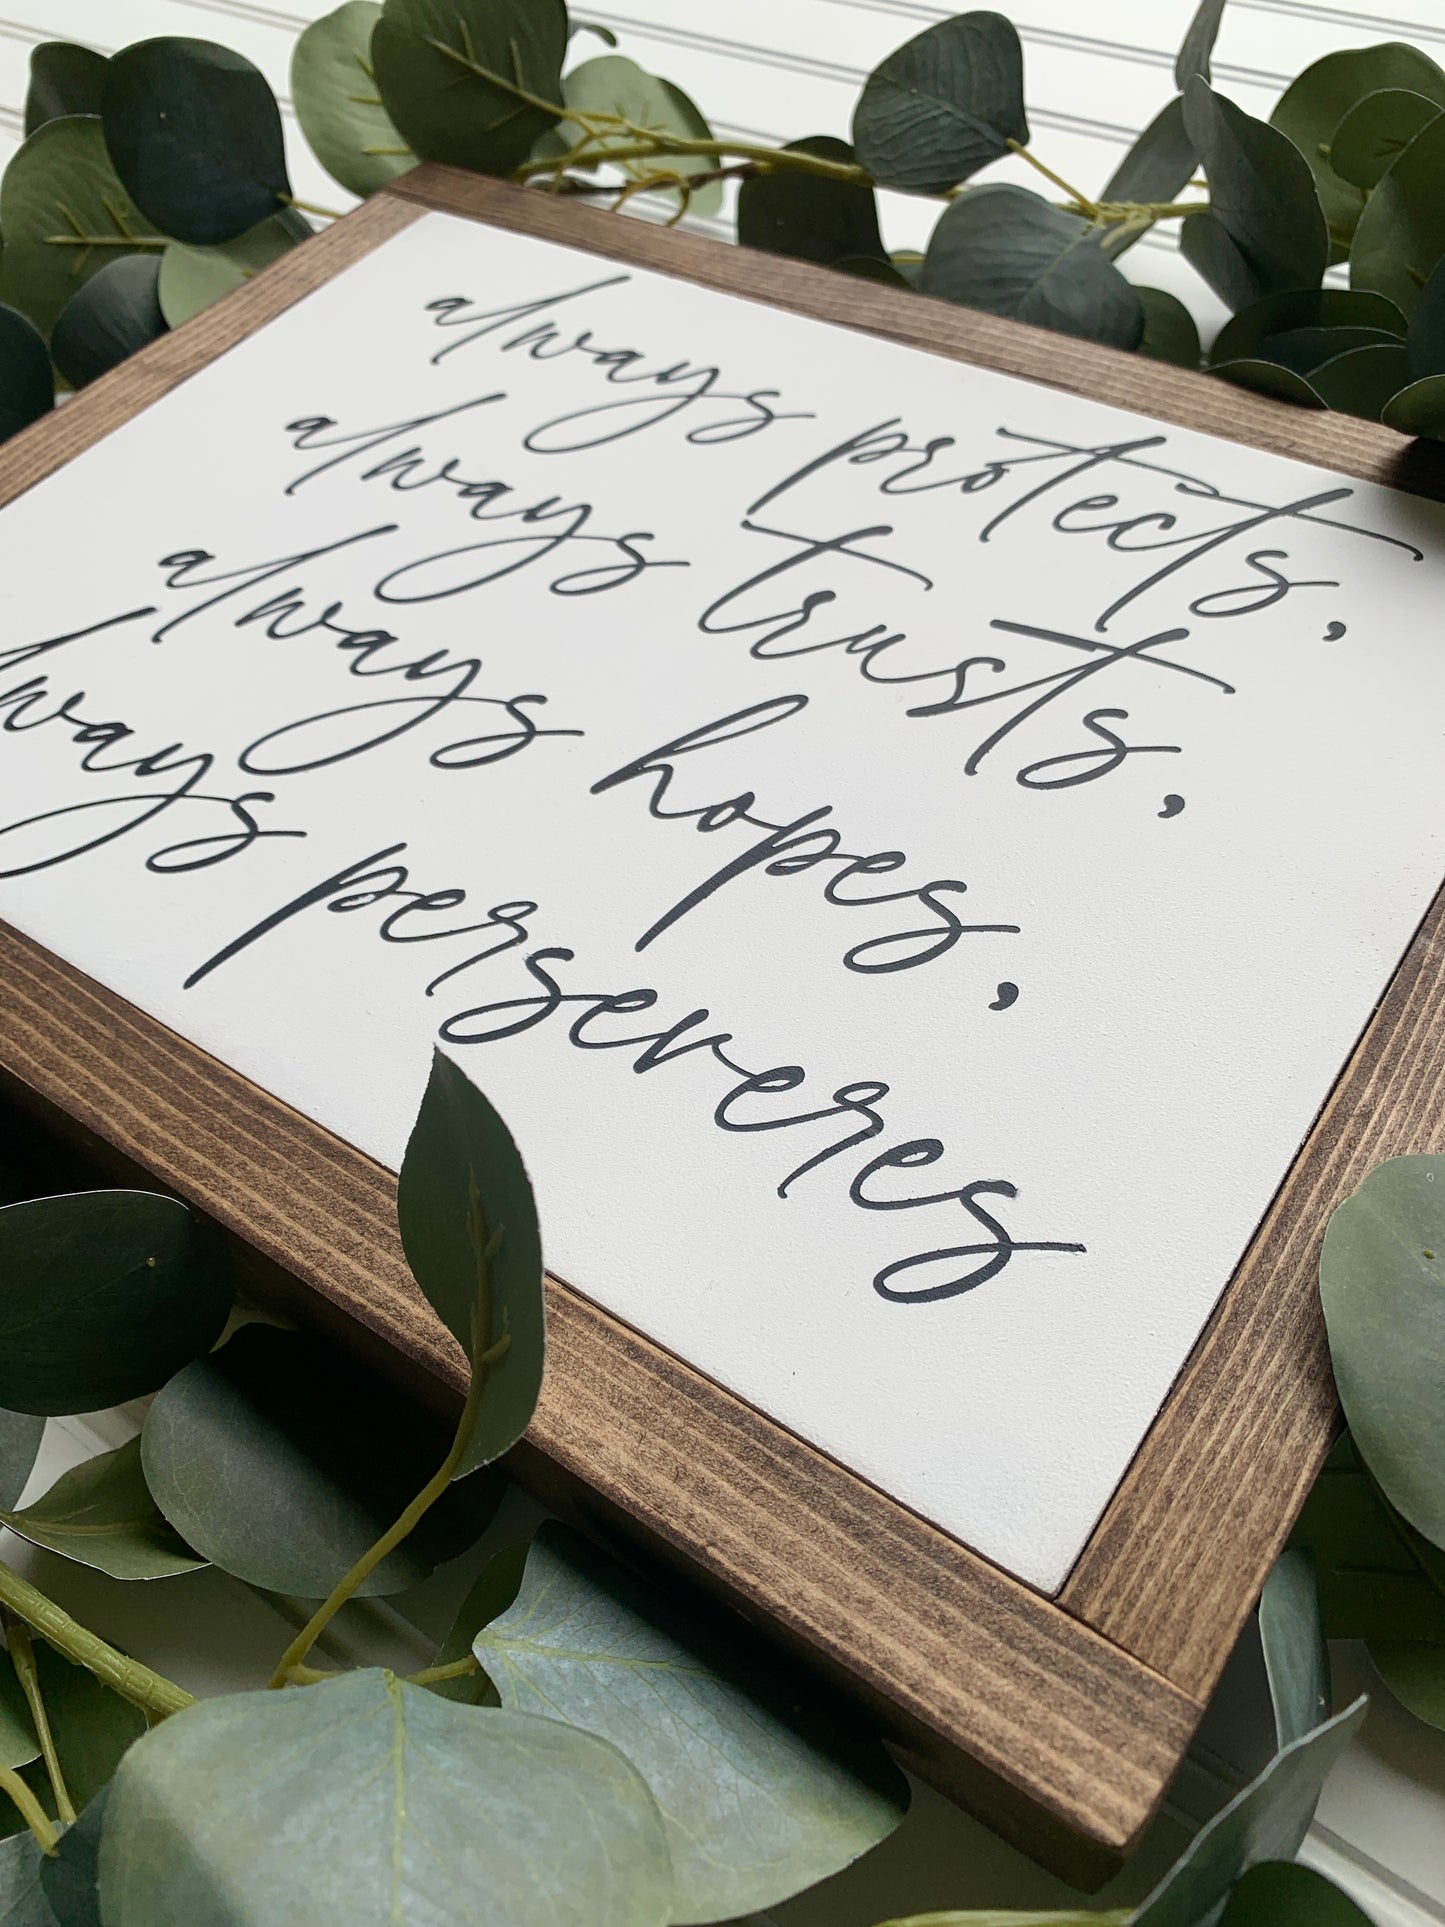 always protects,
always trusts,
always hopes,
always perseveres